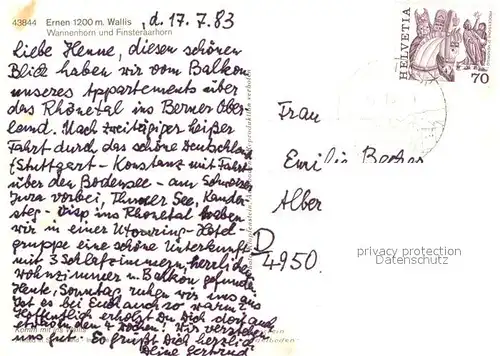 43844 Ernen 1200 m. Wallis , d. 17.7.83
Wannenhorn und Finsteraarhorn
Liebe Henne, diesen schönen
Blick haben wir vom Balkon
unseres Appartements über
das Rhônetal ins Berner Ober-
land. Nach zweitägiger heißer
Fahrt durch das schöne Deutschland
(Stuttgart - Konstanz mit Fahrt
über den Bodensee - am Schweizer
Jura vorbei, Thuner See, Kander-
steg - Visp ins Rhonetal haben
wir in einer Hotel-
gruppe eine schöne Unterkunft
mit 3 Schlafzimmern, herrlichem
Wohnzimmer u. Balkon gefunden
Heute, Sonntag, ruhen wir uns aus
Ist es bei Euch auch so warm?
Hoffentlich erholst Du Dich dort auch
in den 4 Wochen! Wir verstehen
uns gut. Es grüßt Dich herzlich
Deine Gertrud
HELVETIA
70
Frau
Emilie
Alber
D
4950
privacy protection
Datenschutz